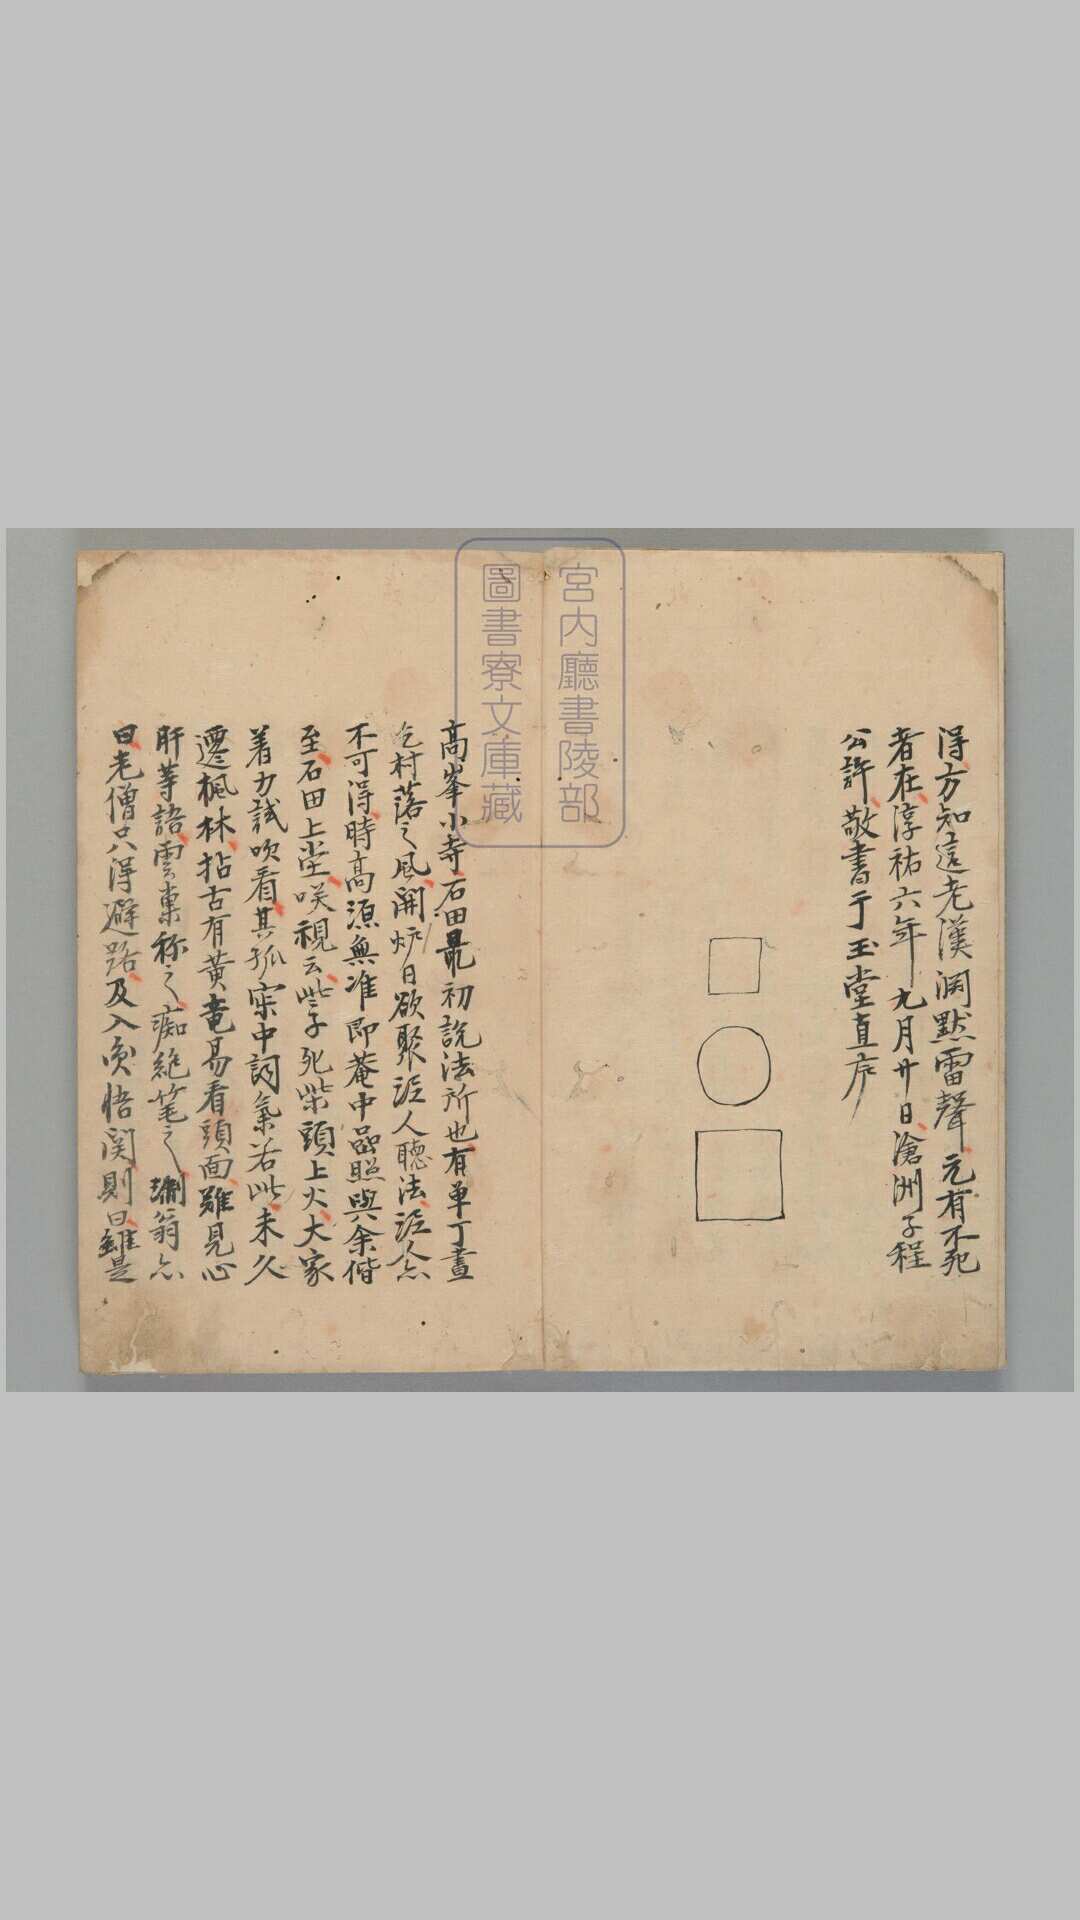 得方知這老漢淵默雷聲元有不死
者在淳祐六年九月廿日滄洲子程
公許敬書于玉堂直序
高峯小寺石田最初說法所也有单丁晝
吃村落之風開炉日欲聚泥人聽法泥人亦
不可得時高源無准即菴中嵓照與余偕
至石田上堂咲視云些子死柴頭上火大家
着力試吹看其孤寂中詞氣若此未久
遷楓林拈古有黄竜易看頭面難見心
肝等語雲巢称之痴絶笔之翁亦
曰老僧只得避路及入奐悟関則曰雖是
宮内廳書陵部
圖書寮文庫藏